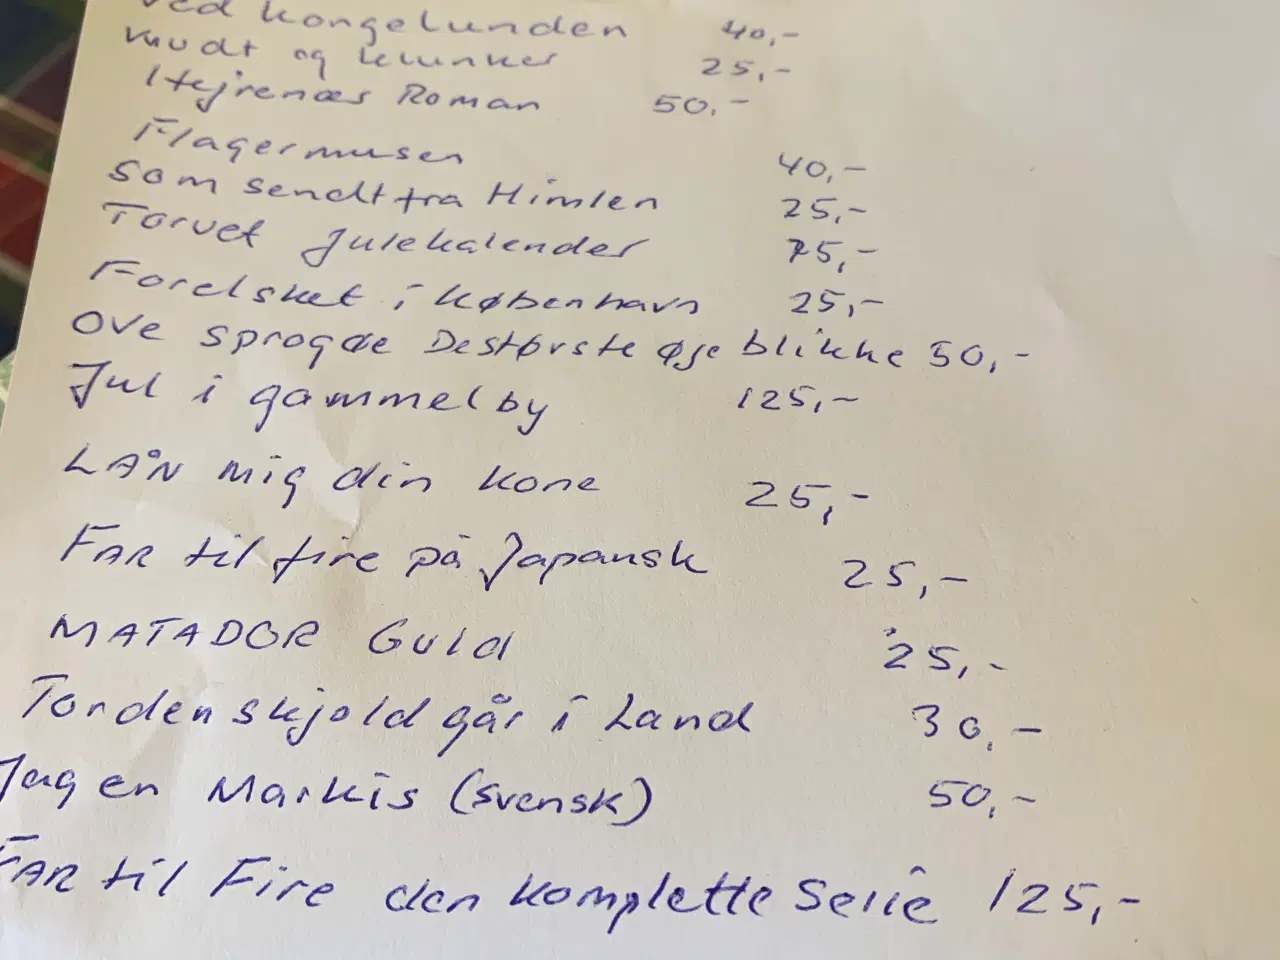 ved Kongelunden 40,-
Knudt og klunker 25,-
Hejrenæs Roman 50,-
Flagermusen 40,-
som sendt fra Himlen 25,-
Torvet Julekalender 75,-
Forelsket i København 25,-
Ove sprogøe De største øje blikke 50,-
Jul i gammelby 125,-
LÅN mig din kone 25,-
FAR til fire på Japansk 25,-
MATADOR Guld 25,-
Tordenskjold går i Land 30,-
Jag en Markis (svensk) 50,-
FAR til Fire den komplette Serie 125,-